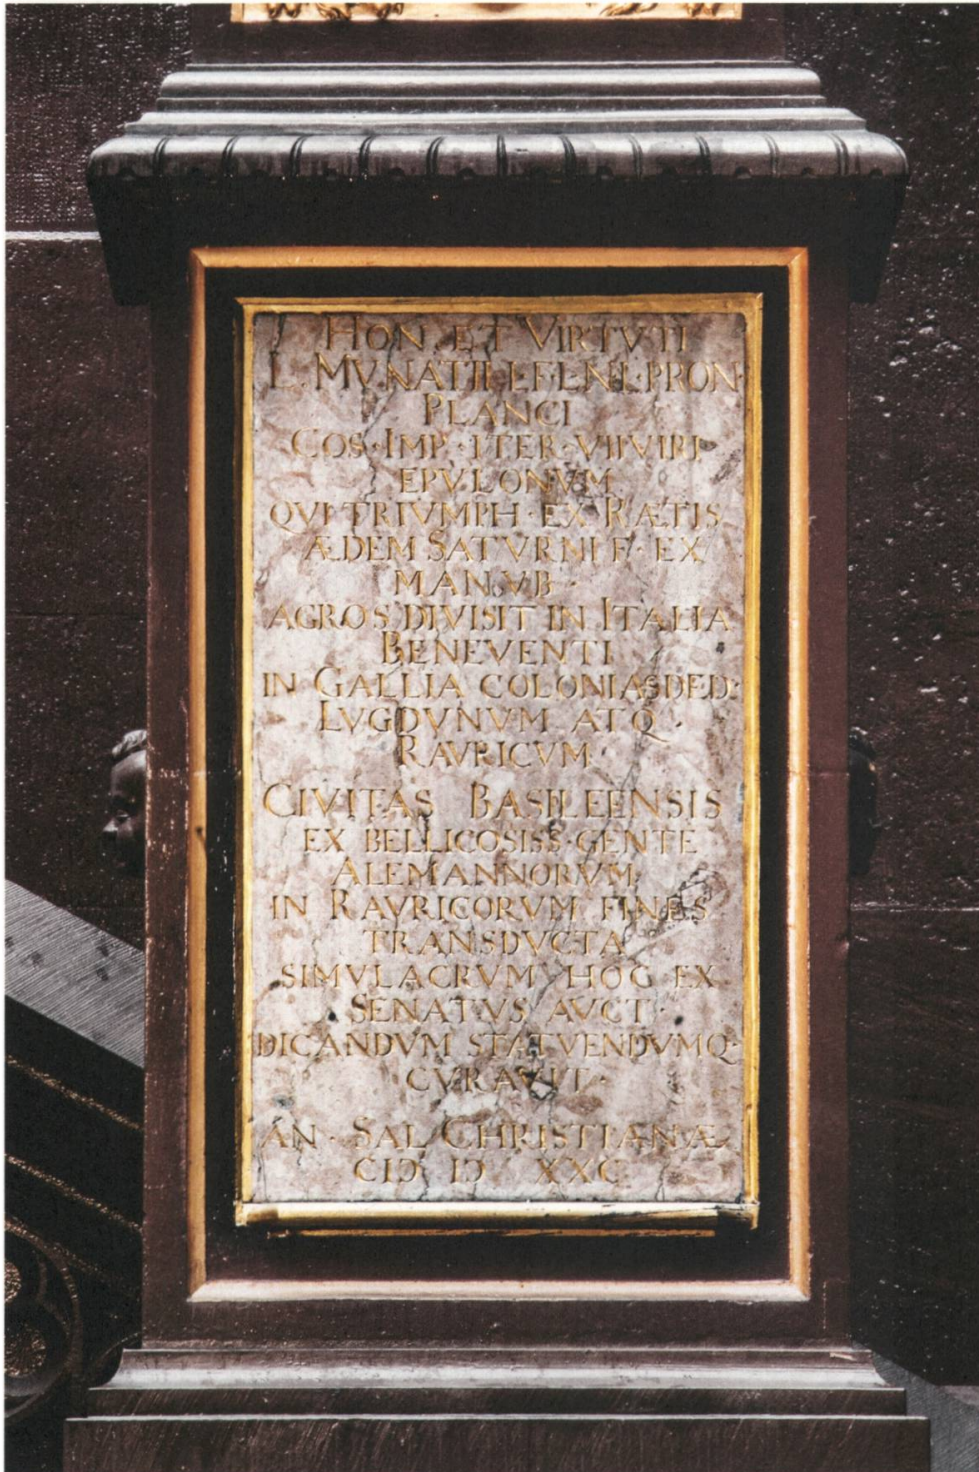 HON · ET VIRTVTI
L · MVNATII L·F·L·N·L·PRON·
PLANCI
COS·IMP·ITER·VIIVIRI
EPVLONVM
QVI TRIVMPH·EX RÆTIS
ÆDEM SATVRNI F· EX
MANVB·
AGROS DIVISIT IN ITALIA
BENEVENTI
IN GALLIA COLONIAS DED·
LVGDVNVM ATQ·
RAVRICVM·
CIVITAS BASILEENSIS
EX BELLICOSISS·GENTE
ALEMANNORVM
IN RAVRICORVM FINES
TRANSDVCTA
SIMVLACRVM HOC EX
SENATVS AVCT·
DICANDVM STATVENDVMQ·
CVRAVIT·
AN · SAL CHRISTIANÆ
CIↃ IↃ XXC